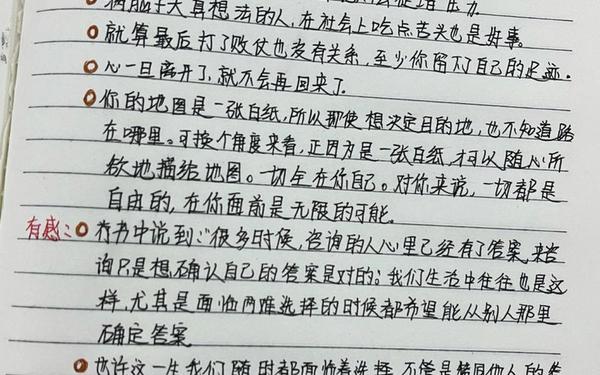 满脑子天真想法的人,在社会上吃点苦头也是好事。
就算最后打了败仗也没有关系,至少你留下了自己的足迹.
心一旦离开了,就不会再回来了.
你的地图是一张白纸,所以即使想决定目的地,也不知道路
在哪里。可换个角度来看,正因为是一张白纸,才可以随心所
欲地描绘地图。一切全在你自己。对你来说,一切都是
自由的,在你面前是无限的可能.
有感: 书中说到:"很多时候,咨询的人心里已经有了答案,来咨
询只是想确认自己的答案是对的;我们生活中往往也是这
样,尤其是面临两难选择的时候都希望能从别人那里
确定答案
也许这一生我们随时都面临着选择,不管是